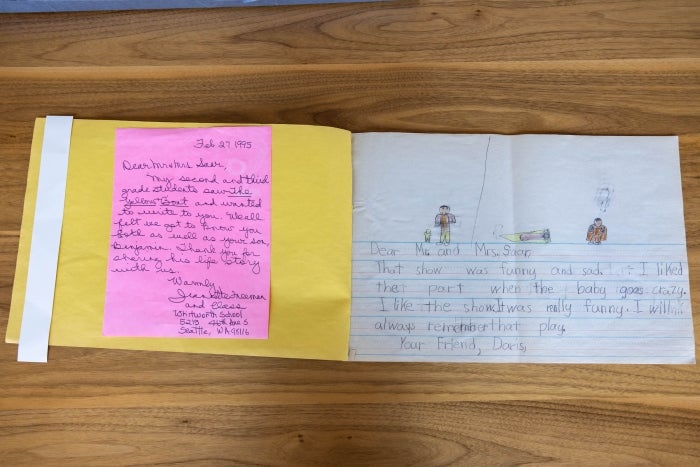 Feb 27 1995
Dear Mr + Mrs Saar,
My second and third
grade students saw the
Yellow Boat and wanted
to write to you. We all
felt we got to know you
both as well as your son,
Benjamin. Thank you for
sharing his life story
with us.
Warmly,
Jeannette Freeman
and Class
Whitworth School
5215 46th Ave S
Seattle, WA 98116
Dear Mr. and Mrs. Saar,
That show was funny and sad. I liked
the part when the baby goes crazy.
I like the show. It was really funny. I will
always remember that play.
Your Friend, Doris,